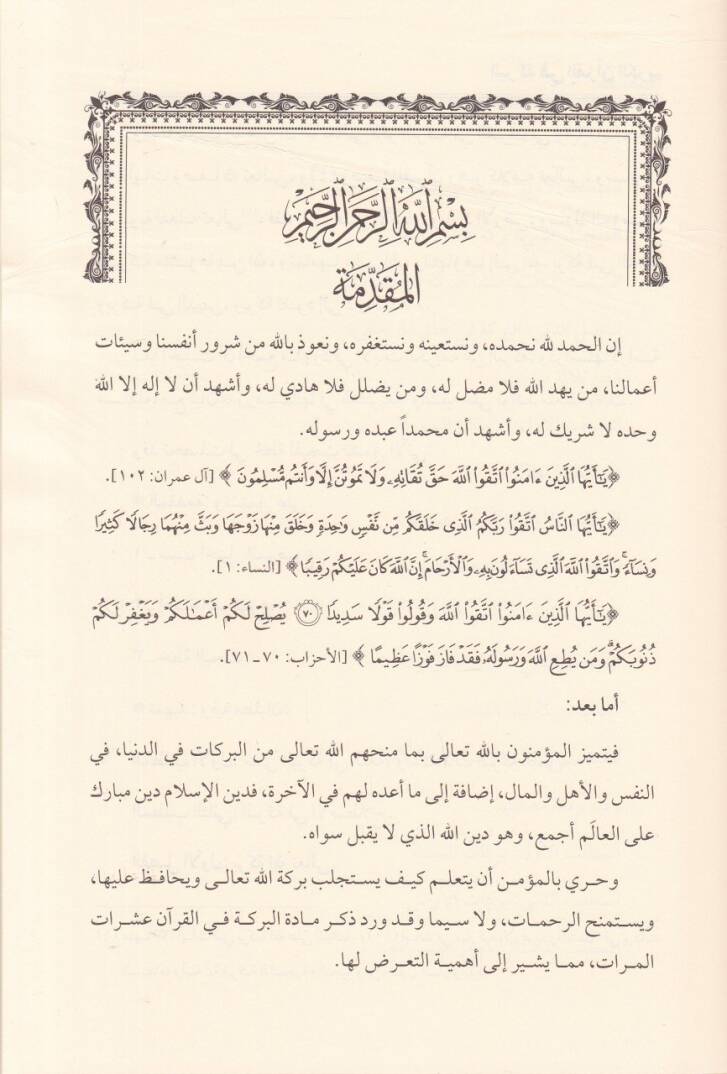 بِسْمِ ٱللَّهِ ٱلرَّحْمَٰنِ ٱلرَّحِيمِ
المُقَدِّمَة
إن الحمد لله نحمده، ونستعينه ونستغفره، ونعوذ بالله من شرور أنفسنا وسيئات
أعمالنا، من يهد الله فلا مضل له، ومن يضلل فلا هادي له، وأشهد أن لا إله إلا الله
وحده لا شريك له، وأشهد أن محمداً عبده ورسوله.
﴿يَٰٓأَيُّهَا ٱلَّذِينَ ءَامَنُوا۟ ٱتَّقُوا۟ ٱللَّهَ حَقَّ تُقَاتِهِۦ وَلَا تَمُوتُنَّ إِلَّا وَأَنتُم مُّسْلِمُونَ﴾ [آل عمران: ١٠٢].
﴿يَٰٓأَيُّهَا ٱلنَّاسُ ٱتَّقُوا۟ رَبَّكُمُ ٱلَّذِى خَلَقَكُم مِّن نَّفْسٍ وَٰحِدَةٍ وَخَلَقَ مِنْهَا زَوْجَهَا وَبَثَّ مِنْهُمَا رِجَالًا كَثِيرًا
وَنِسَآءً ۚ وَٱتَّقُوا۟ ٱللَّهَ ٱلَّذِى تَسَآءَلُونَ بِهِۦ وَٱلْأَرْحَامَ ۚ إِنَّ ٱللَّهَ كَانَ عَلَيْكُمْ رَقِيبًا﴾ [النساء: ١].
﴿يَٰٓأَيُّهَا ٱلَّذِينَ ءَامَنُوا۟ ٱتَّقُوا۟ ٱللَّهَ وَقُولُوا۟ قَوْلًا سَدِيدًا ۝٧٠ يُصْلِحْ لَكُمْ أَعْمَٰلَكُمْ وَيَغْفِرْ لَكُمْ
ذُنُوبَكُمْ ۗ وَمَن يُطِعِ ٱللَّهَ وَرَسُولَهُۥ فَقَدْ فَازَ فَوْزًا عَظِيمًا﴾ [الأحزاب: ٧٠ـ٧١].
أما بعد:
فيتميز المؤمنون بالله تعالى بما منحهم الله تعالى من البركات في الدنيا، في
النفس والأهل والمال، إضافة إلى ما أعده لهم في الآخرة، فدين الإسلام دين مبارك
على العالَم أجمع، وهو دين الله الذي لا يقبل سواه.
وحري بالمؤمن أن يتعلم كيف يستجلب بركة الله تعالى ويحافظ عليها،
ويستمنح الرحمات، ولا سيما وقد ورد ذكر مادة البركة في القرآن عشرات
المرات، مما يشير إلى أهمية التعرض لها.